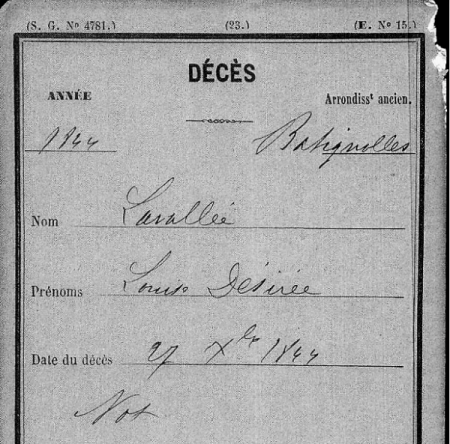 (S. G. Nº 4781.) (23.) (E. Nº 15.)
DÉCÈS
ANNÉE Arrondissᵗ ancien.
1844 Batignolles
Nom Lavallée
Prénoms Louise Désirée
Date du décès 27 Xbr 1844
Not